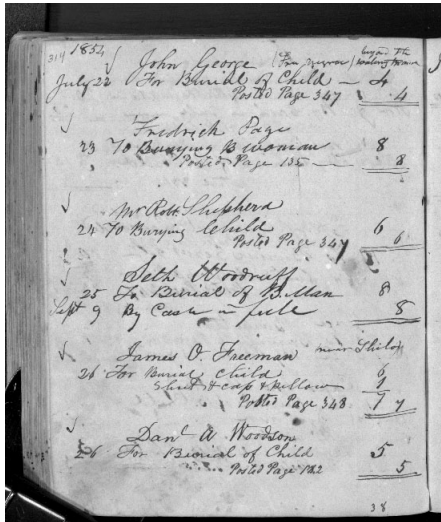 314 1854
John George (Free negroe) beyond the
July 22 For Burial of Child — 4
Posted Page 347 4
Fredrick Page
23 To Burying B woman 8
Posted Page 135 — 8
Mr Robt Shepherd
24 To Burying Child 6
Posted Page 347 6
Seth Woodruff
25 To Burial of B. Man 8
Sept 9 By Cash in full 8
James O. Freeman near Shiloh
26 For Burial Child 6
Shird & cap & Pillow 1
Posted Page 348 7 7
Danl A Woodson
26 For Burial of Child 5
Posted Page 122 5
38